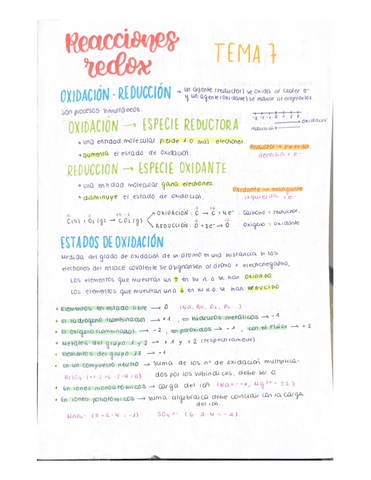 Reacciones
redox
TEMA 7
OXIDACIÓN - REDUCCIÓN → un agente (reductor) se oxida al ceder e-
y un agente (oxidante) se reduce al
Son procesos simultáneos
OXIDACIÓN → ESPECIE REDUCTORA
• una entidad molecular pierde 1 o más electrones
• aumenta el estado de oxidación.
derecha + e-
REDUCCIÓN → ESPECIE OXIDANTE
• una entidad molecular gana electrones.
• disminuye el estado de oxidación.
izquierda + e-
C(s) + O₂(g) → CO₂(g)
OXIDACIÓN: C → C + 4e- Carbono = reductor.
REDUCCIÓN: O + 2e- → O Oxígeno = oxidante
ESTADOS DE OXIDACIÓN
Medida del grado de oxidación de un átomo en una sustancia si los
electrones del enlace covalente se asignaran al átomo + electronegativo.
Los elementos que muestran un ↑ en su n.o se han OXIDADO
Los elementos que muestran una ↓ en su n.o se han REDUCIDO
• Elementos en estado libre → 0
• El hidrógeno (combinado) → +1, en hidruros metálicos → -1
• El oxígeno (combinado) → -2, en peróxidos → -1, con el flúor → +2
• Metales del grupo 1 y 2 → +1 y +2 (respectivamente)
• Elementos del grupo 17 → -1
• En un compuesto neutro → suma de los nº de oxidación multiplica-
dos por los subíndices, debe ser 0
• En iones monoatómicos → carga del ion
• En iones poliatómicos → suma algebraica debe coincidir con la carga
del ion.